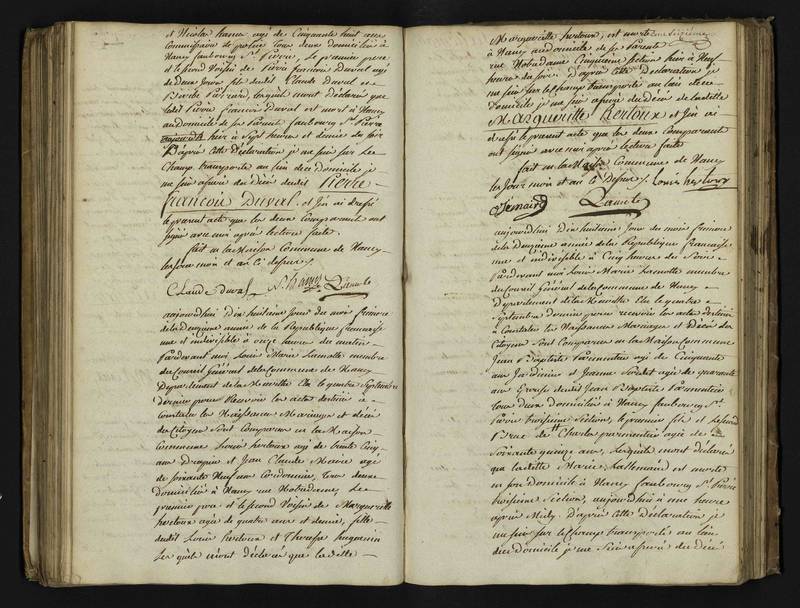 et Nicolas hanus agé de Cinquante huit ans
Commissaire de police tous deux domiciliés à
Nancy faubourg St. Pierre, Le premier pere
et le second Voisin de Pierre francois Duval agé
de Deux Jours fils dudit Claude Duval et
lesquels m'ont déclaré que
ledit Pierre Francois Duval est mort à Nancy
au Domicile de ses Parents faubourg St. Pierre
hier à Sept heures et demie du soir
D'après Cette Déclaration je me suis sur Le
Champ transporté au lieu du domicile je
me suis assuré du Décès dudit Pierre
François Duval. et J'en ai dressé
le present acte que les deux Comparants ont
signé avec moi après Lecture faite.
fait en la Maison Commune de Nancy
les Jour mois et an Ci dessus
Claude Duval N. hanus Lamotte
aujourdhui Dix huitieme jour du mois frimaire
de la Deuxieme année de la Republique francaise
une et indivisible à onze heures du matin
Pardevant moi Louis Marie Lamotte membre
du Conseil Général de la Commune de Nancy
Departement de la Meurthe Elu le quatre Septembre
dernier pour Recevoir les actes destinés à
Constater les Naissances Mariages et décès
des Citoyens Sont Comparus en la Maison
Commune Louis hertoux agé de trente Cinq
ans Drapier et Jean Claude Maire agé
de soixante Neuf ans Cordonnier, tous deux
Domiciliés à Nancy rue Le
premier pere et le second Voisin de Margueritte
hertoux agée de quatre ans et demie, fille
dudit Louis hertoux et Therese huguenin
Les quels m'ont déclaré que ladite
Margueritte hertoux, est morte
à Nancy au domicile de ses Parents
rue hier à Neuf
heures du soir. D'après Cette Declaration je
me suis sur le champ transporté au lieu du
Domicile je me suis assuré du Décès de ladite
Margueritte hertoux et J'en ai
dressé le present acte que les deux Comparants
ont signé avec moi après Lecture faite
fait en la Maison Commune de Nancy
les Jour mois et an Ci Dessus /. Louis hertoux
Lamotte
aujourdhui Dix huitieme Jour du mois frimaire
de la Deuxieme année de la Republique francaise
une et indivisible à Cinq heures du Soir
Pardevant moi Louis Marie Lamotte membre
du Conseil Général de la Commune de Nancy
Departement de la Meurthe Elu le quatre
Septembre dernier pour recevoir les actes destinés
à Constater les Naissances Mariages et Décès des
Citoyens Sont Comparus en la Maison Commune
Jean Baptiste Parmentier agé de Cinquante
ans Jardinier et Jeanne agée de quarante
ans Epouse dudit Jean Baptiste Parmentier
tous deux domiciliés à Nancy faubourg St.
Pierre troisieme Section, le premier fils et la seconde
Bru de Charles parmentier agée de
Soixante quinze ans, Lesquels m'ont déclaré
que ladite Marie Lallemand est morte
en son Domicile à Nancy faubourg St. Pierre
troisieme Section, aujourdhui à une heure
après Midy. D'après Cette Déclaration je
me suis sur le Champ transporté au lieu
du domicile je me suis assuré du Décès